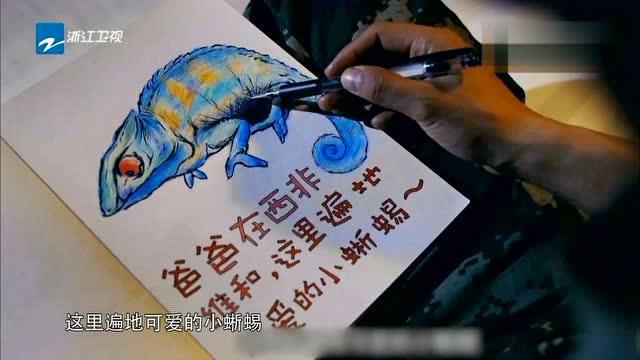 浙江卫视
爸爸在西非
维和,这里遍地
爱的小蜥蜴~
这里遍地可爱的小蜥蜴